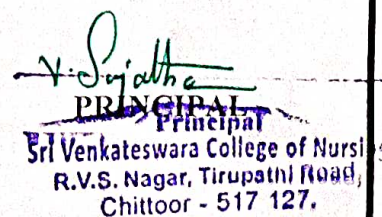 V. Sujatha
PRINCIPAL
Principal
Sri Venkateswara College of Nursi
R.V.S. Nagar, Tirupathi Road,
Chittoor - 517 127.